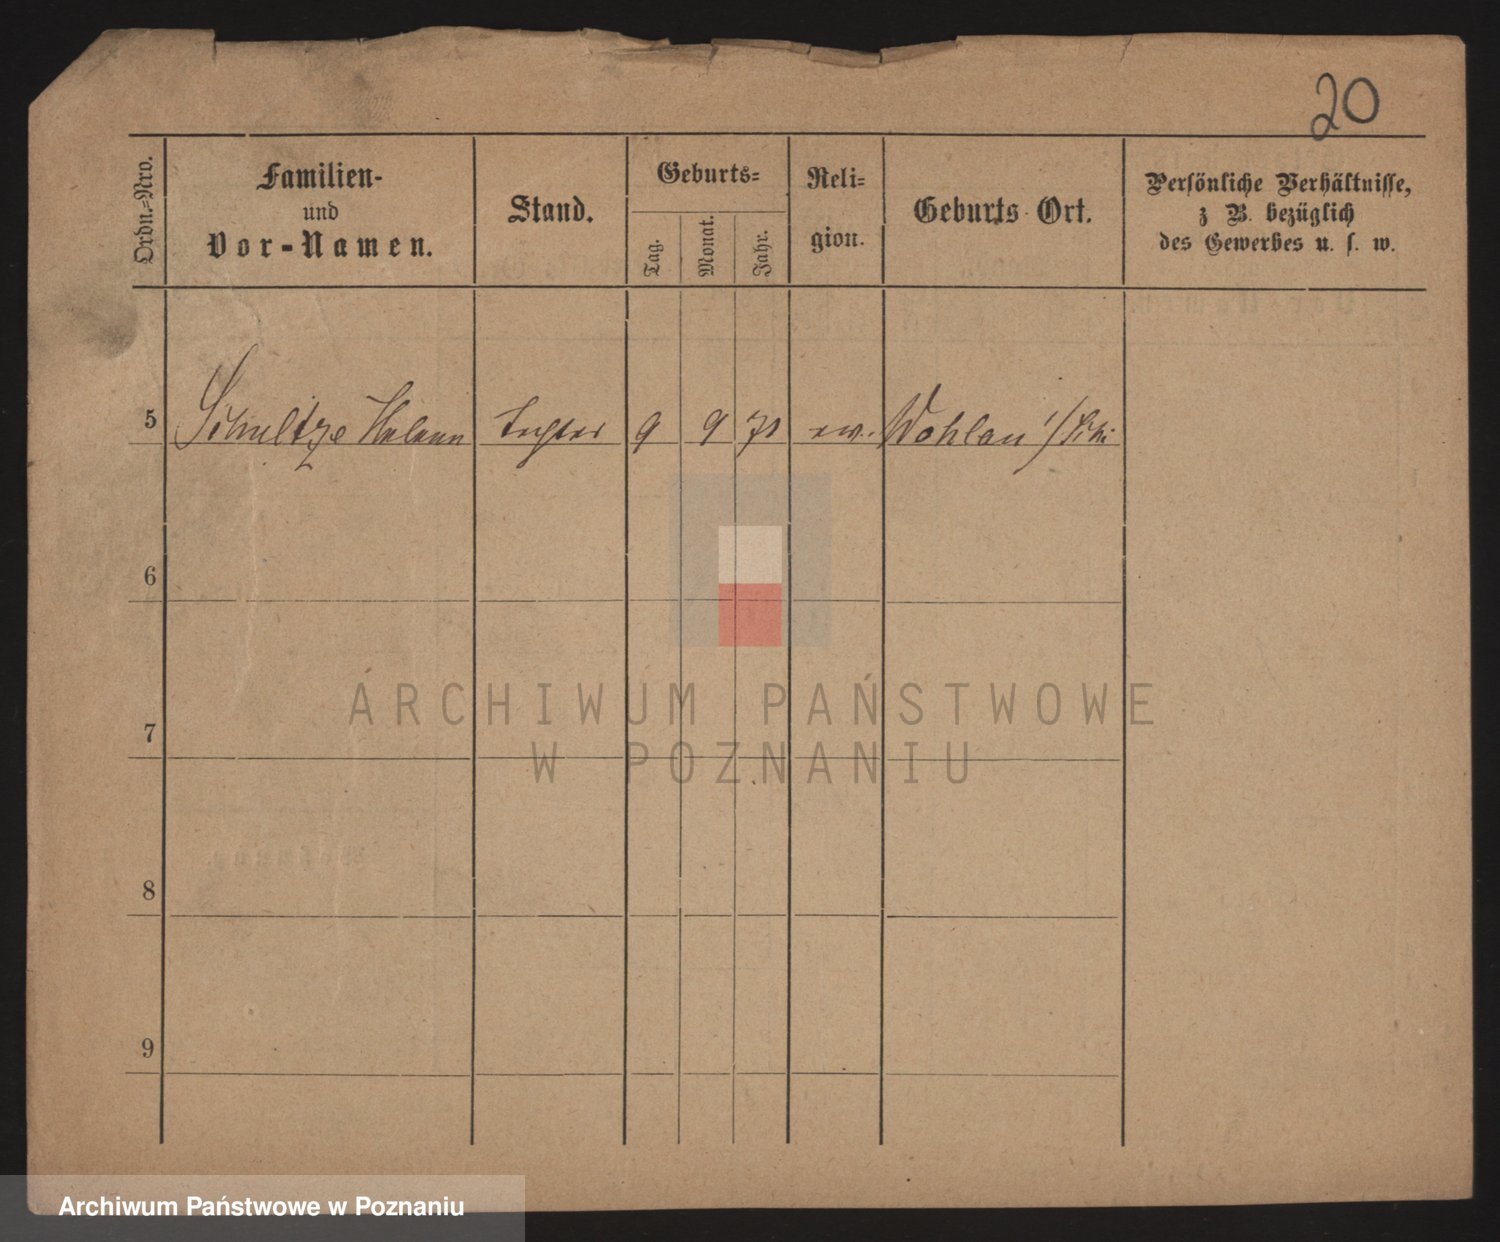 20
Ordn.-Nro.
Familien-
und
Vor-Namen.
Stand.
Geburts-
Tag.
Monat.
Jahr.
Reli-
gion.
Geburts Ort.
Persönliche Verhältnisse,
z B. bezüglich
des Gewerbes u. s. w.
5 Schultze Helene Tochter 9 9 71 ev. Wohlau
6
7
8
9
ARCHIWUM PAŃSTWOWE
W POZNANIU
Archiwum Państwowe w Poznaniu